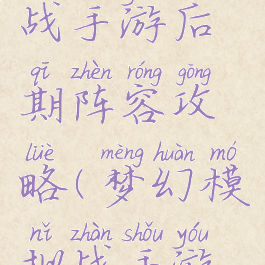 战手游后
qī zhèn róng gōng
期阵容攻
lüè mèng huàn mó
略(梦幻模
nǐ zhàn shǒu yóu
拟战手游